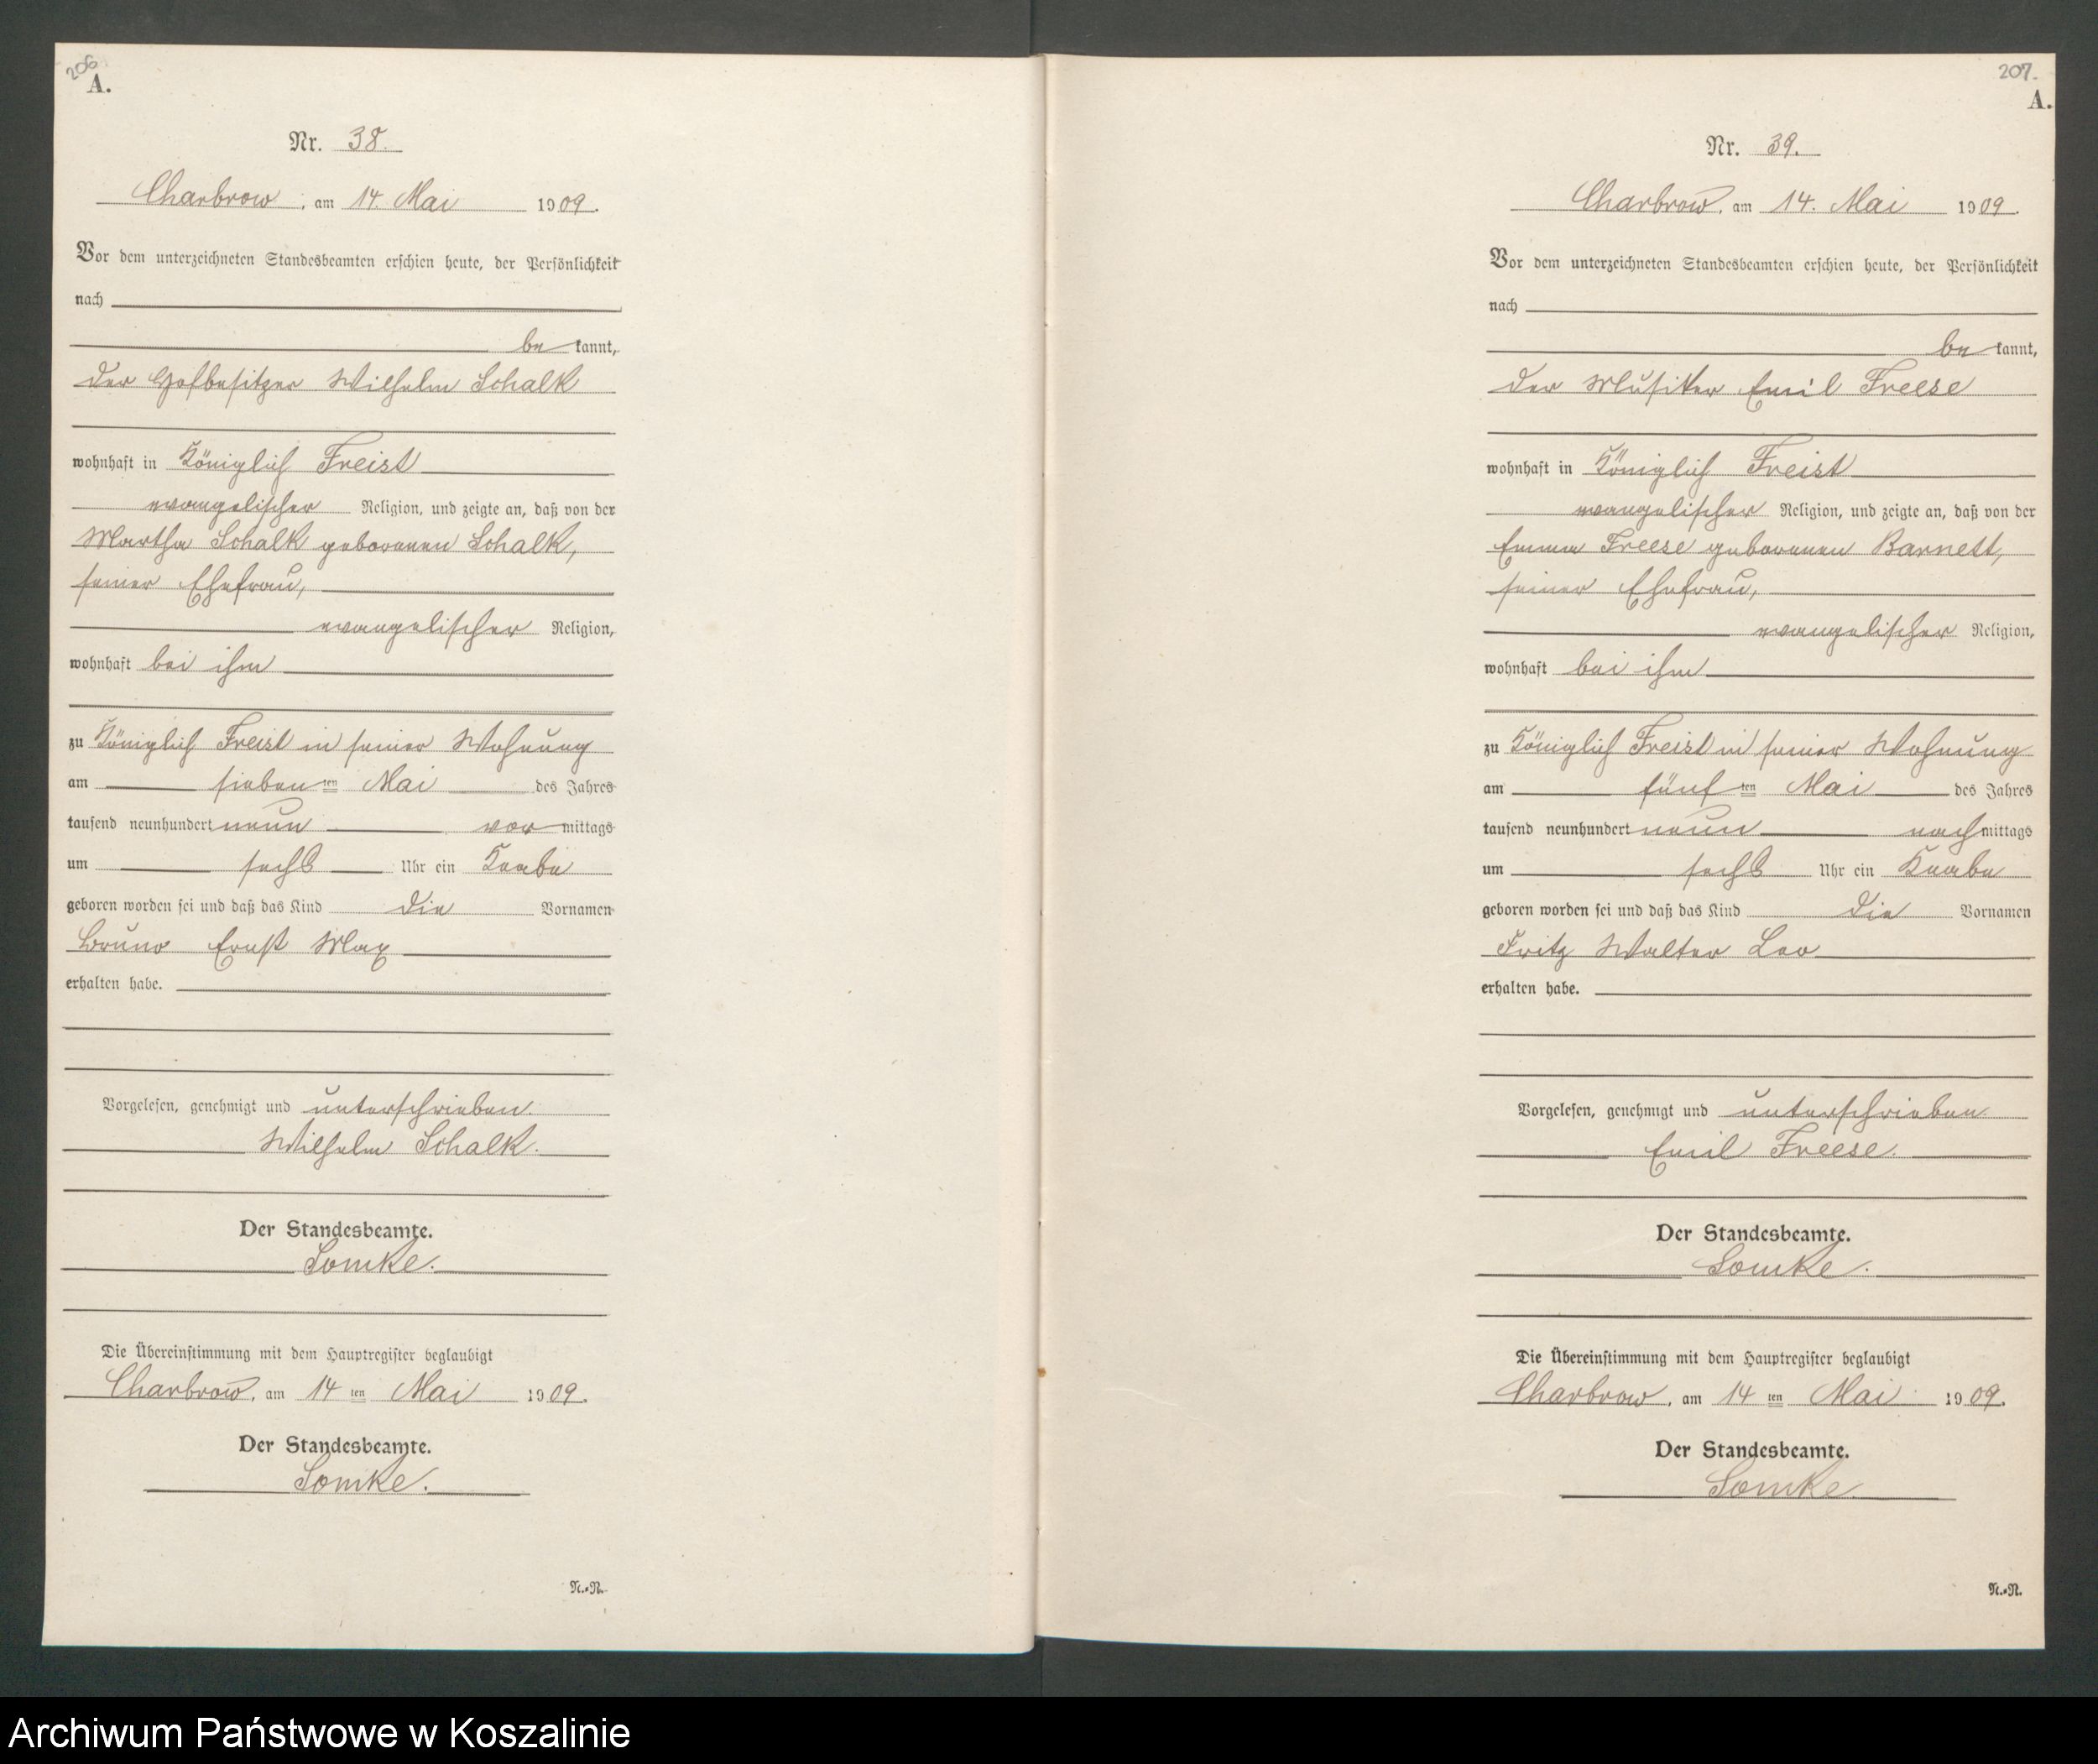 206
A.
Nr. 38.
Charbrow, am 14. Mai 1909.
Vor dem unterzeichneten Standesbeamten erschien heute, der Persönlichkeit
nach
bekannt,
der Hofbesitzer Wilhelm Schalk
wohnhaft in Königlich Freist
evangelischer Religion, und zeigte an, daß von der
Martha Schalk geborenen Schalk,
seiner Ehefrau,
evangelischer Religion,
wohnhaft bei ihm
zu Königlich Freist in seiner Wohnung
am sieben ten Mai des Jahres
tausend neunhundert neun vormittags
um sechs Uhr ein Knabe
geboren worden sei und daß das Kind die Vornamen
Bruno Ernst Max
erhalten habe.
Vorgelesen, genehmigt und unterschrieben.
Wilhelm Schalk.
Der Standesbeamte.
Lomke.
Die Übereinstimmung mit dem Hauptregister beglaubigt
Charbrow, am 14 ten Mai 1909.
Der Standesbeamte.
Lomke.
N.-R.
207.
A.
Nr. 39.
Charbrow, am 14. Mai 1909.
Vor dem unterzeichneten Standesbeamten erschien heute, der Persönlichkeit
nach
bekannt,
der Musiker Emil Freese
wohnhaft in Königlich Freist
evangelischer Religion, und zeigte an, daß von der
Emma Freese geborenen Barnett,
seiner Ehefrau,
evangelischer Religion,
wohnhaft bei ihm
zu Königlich Freist in seiner Wohnung
am fünf ten Mai des Jahres
tausend neunhundert neun nachmittags
um sechs Uhr ein Knabe
geboren worden sei und daß das Kind die Vornamen
Fritz Walter Leo
erhalten habe.
Vorgelesen, genehmigt und unterschrieben
Emil Freese.
Der Standesbeamte.
Lomke.
Die Übereinstimmung mit dem Hauptregister beglaubigt
Charbrow, am 14 ten Mai 1909.
Der Standesbeamte.
Lomke.
N.-R.
Archiwum Państwowe w Koszalinie